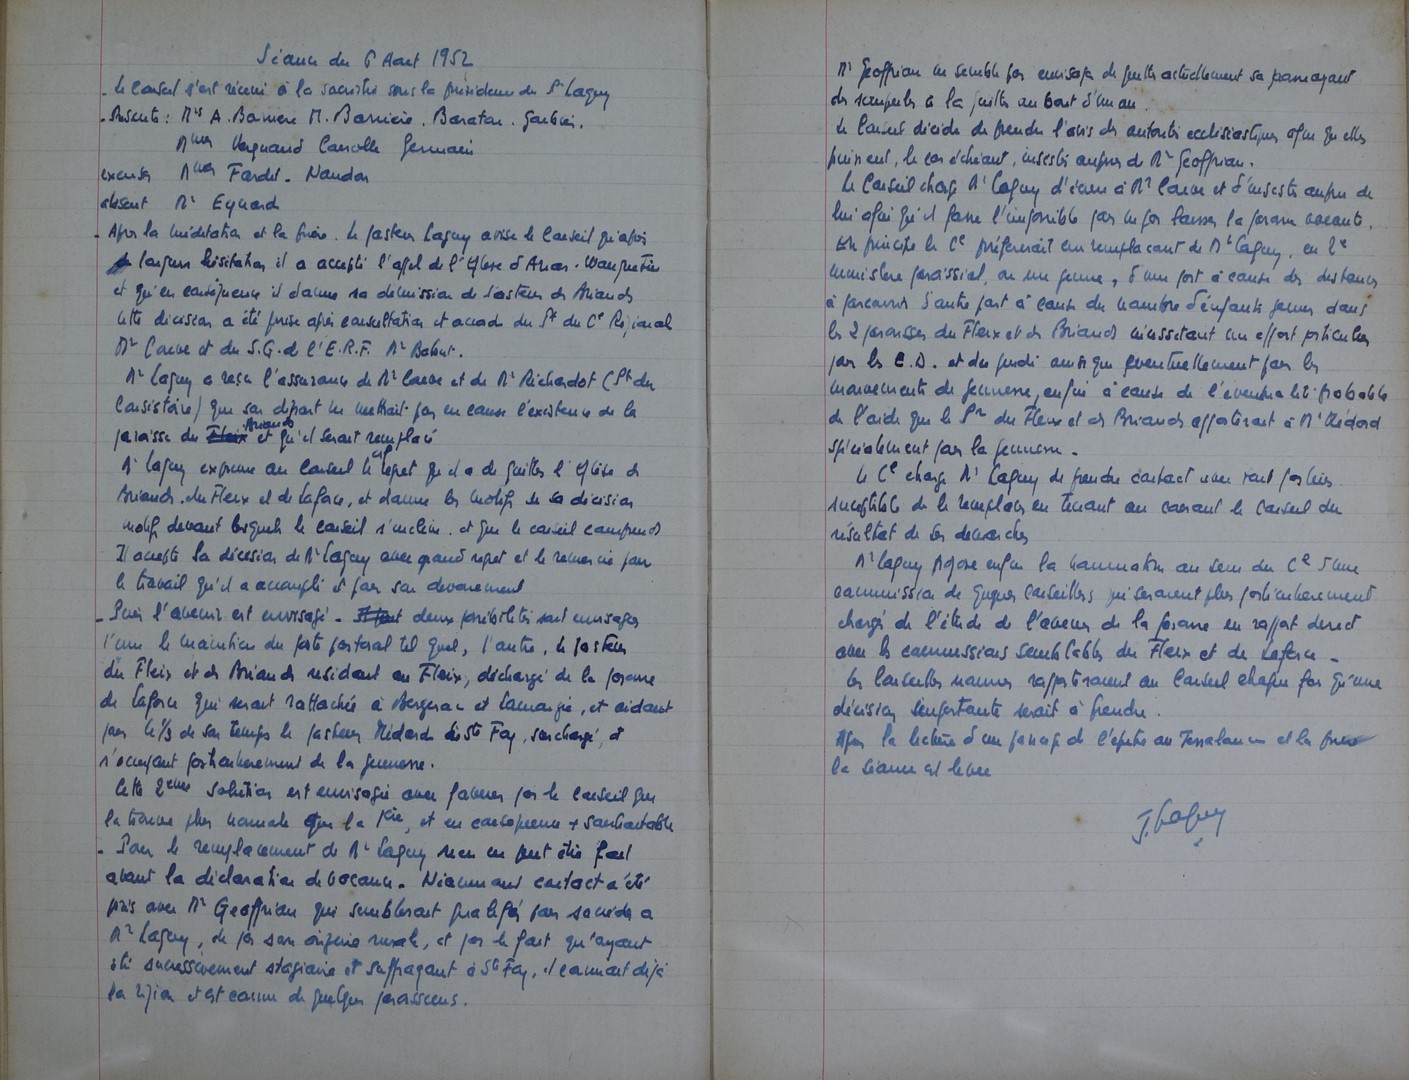 Séance du 6 Aout 1952
- Le Conseil s'est réuni à la sacristie sous la présidence du Pr Lagny
- Présents : Mrs A. Barrière M. Barrière. Baratau.
Mmes Vergnaud Carolle Germain
excusés Mmes Fardet. Naudon
absent Mr Eynard
- Après la méditation et la prière. Le pasteur Lagny avise le Conseil qu'après
longues hésitations il a accepté l'appel de l'Eglise d'Arras. Wanquetin
et qu'en conséquence il donne sa démission de Pasteur des Briands
cette décision a été prise après consultation et accord du Pt du Ce Régional
Mr Caeve et du S.G. de l'E.R.F. Mr Bobert.
Mr Lagny a reçu l'assurance de Mr Caeve et de Mr Richardot (Pt du
Consistoire) que son départ ne mettrait pas en cause l'existence de la
paroisse des Fleix Briands et qu'il serait remplacé
Mr Lagny exprime au Conseil le regret qu'il a de quitter l'Eglise des
Briands. du Fleix et de Laforce, et donne les motifs de sa décision
motifs devant lesquels le conseil s'incline. et que le conseil comprend
Il accepte la décision de Mr Lagny avec grand regret et le remercie pour
le travail qu'il a accompli et pour son dévouement
- Puis l'avenir est envisagé - Il faut deux possibilités sont envisagées
l'une le maintien du poste pastoral tel quel, l'autre, le pasteur
du Fleix et des Briands résidant au Fleix, déchargé de la paroisse
de Laforce qui serait rattachée à Bergerac et Lamonzie, et aidant
pour le 1/3 de son temps le pasteur Médard de Ste Foy, surchargé, et
s'occupant particulièrement de la jeunesse.
Cette 2ème solution est envisagée avec faveur par le Conseil qui
la trouve plus normale que la 1ère, et en conséquence + souhaitable
- Pour le remplacement de Mr Lagny rien ne peut être fait
avant la déclaration de vacance. Néanmoins contact a été
pris avec Mr Geoffrian qui semblerait qualifié pour succéder à
Mr Lagny, de par son origine rurale, et par le fait qu'ayant
été successivement stagiaire et suffragant à Ste Foy, il connait déjà
la région et est connu de quelques paroissiens.
Mr Geoffrian ne semble pas envisager de quitter actuellement sa paroisse ayant
des scrupules à la quitter au bout d'un an.
Le Conseil décide de prendre l'avis des autorités ecclésiastiques afin qu'elles
puissent, le cas échéant, insister auprès de Mr Geoffrian.
Le Conseil charge Mr Lagny d'écrire à Mr Caeve et d'insister auprès de
lui afin qu'il fasse l'impossible pour ne pas laisser la paroisse vacante.
En principe le Ce préférerait un remplaçant de Mr Lagny, en 1er
ministère paroissial, ou un jeune, d'une part à cause des distances
à parcourir d'autre part à cause du nombre d'enfants jeunes dans
les 2 paroisses du Fleix et des Briands nécessitant un effort particulier
pour les E.D. et du jeudi ainsi que éventuellement pour les
mouvements de jeunesse, enfin à cause de l'éventualité probable
de l'aide que le Pr du Fleix et des Briands apporterait à Mr Médard
spécialement pour la jeunesse.
Le Ce charge Mr Lagny de prendre contact avec tout pasteur
susceptible de le remplacer en tenant au courant le Conseil du
résultat de ses démarches
Mr Lagny propose enfin la nomination au sein du Ce d'une
commission de quelques conseillers qui seraient plus particulièrement
chargé de l'étude de l'avenir de la paroisse en rapport direct
avec les commissions semblables du Fleix et de Laforce -
Les Conseillers nommés rapporteraient au Conseil chaque fois qu'une
décision importante serait à prendre.
Après la lecture d'un passage de l'épitre aux Thessaloniciens et la prière
la séance est levée
J. Lagny